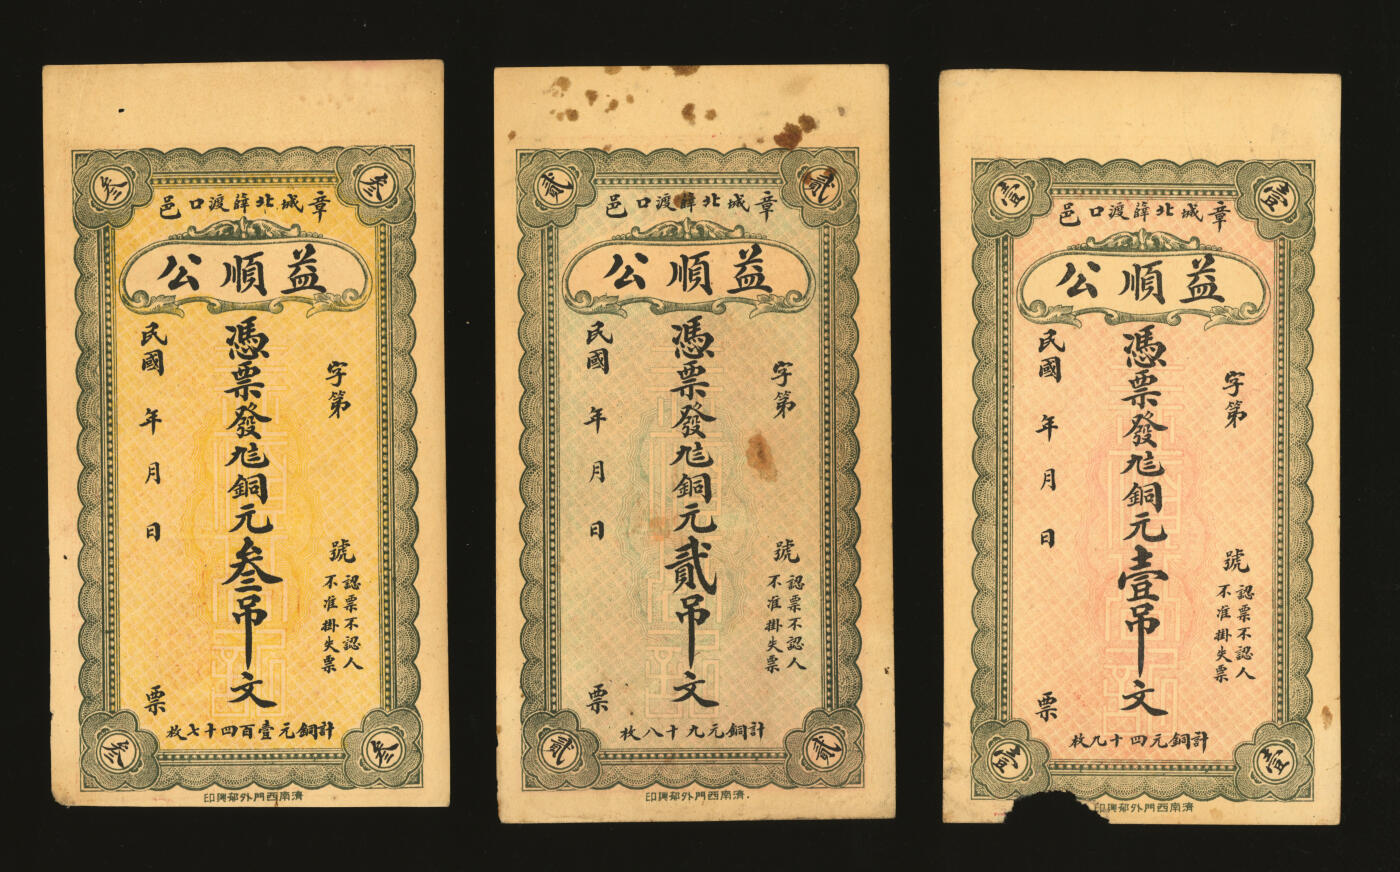 叁
叁
章城北薛渡口邑
益順公
字第
號
認票不認人
不准掛失票
憑票發銅元叁吊文
民國 年 月 日
票
計銅元壹百四十七枚
叁
叁
濟南西門外興印
貳
貳
章城北薛渡口邑
益順公
字第
號
認票不認人
不准掛失票
憑票發銅元貳吊文
民國 年 月 日
票
計銅元九十八枚
貳
貳
濟南西門外興印
壹
壹
章城北薛渡口邑
益順公
字第
號
認票不認人
不准掛失票
憑票發銅元壹吊文
民國 年 月 日
票
計銅元四十九枚
壹
壹
濟南西門外興印